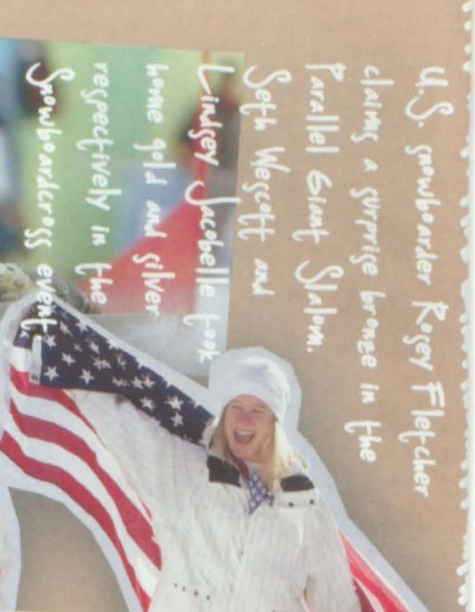 U.S. snowboarder Rosey Fletcher
claims a surprise bronze in the
Parallel Giant Slalom.
Seth Wescott and
Lindsey Jacobelle took
home gold and silver
respectively in the
Snowboardcross event.